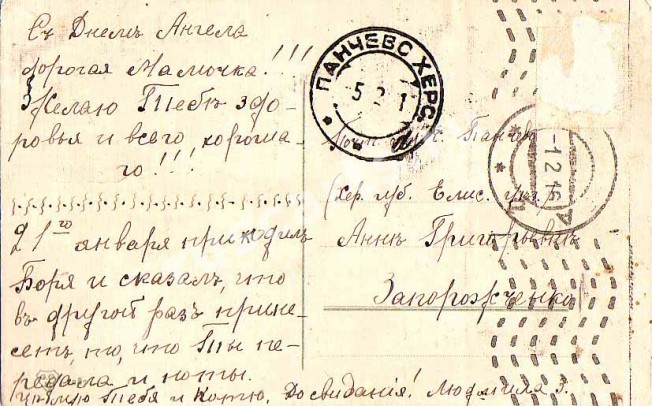 Съ Днемъ Ангела
дорогая Мамочка!!!
Желаю Тебѣ здо-
ровья и всего хороша-
го!!!
21го января приходилъ
Боря и сказалъ, что
въ другой разъ прине-
сетъ то, что Ты пе-
редала и ноты.
Цѣлую Тебя и Котю, До свиданія! Людмила З.
ПАНЧЕВО ХЕРС.
5 2 1
-1 2 16
Почт.
Хер. губ. Елис. уѣз.
Аннѣ Григорьевнѣ
Запорожченко